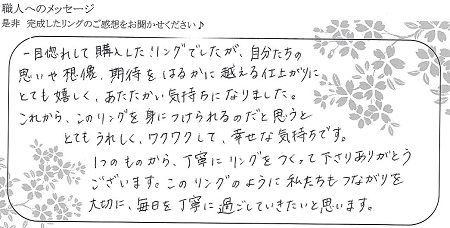 職人へのメッセージ
是非 完成したリングのご感想をお聞かせください♪
一目惚れして購入したリングでしたが、自分たちの
思いや想像、期待をはるかに越える仕上がりに
とても嬉しく、あたたかい気持ちになりました。
これから、このリングを身につけられるのだと思うと
とてもうれしく、ワクワクして、幸せな気持ちです。
1つのものから、丁寧にリングをつくって下さりありがとう
ございます。このリングのように私たちもつながりを
大切に、毎日を丁寧に過ごしていきたいと思います。